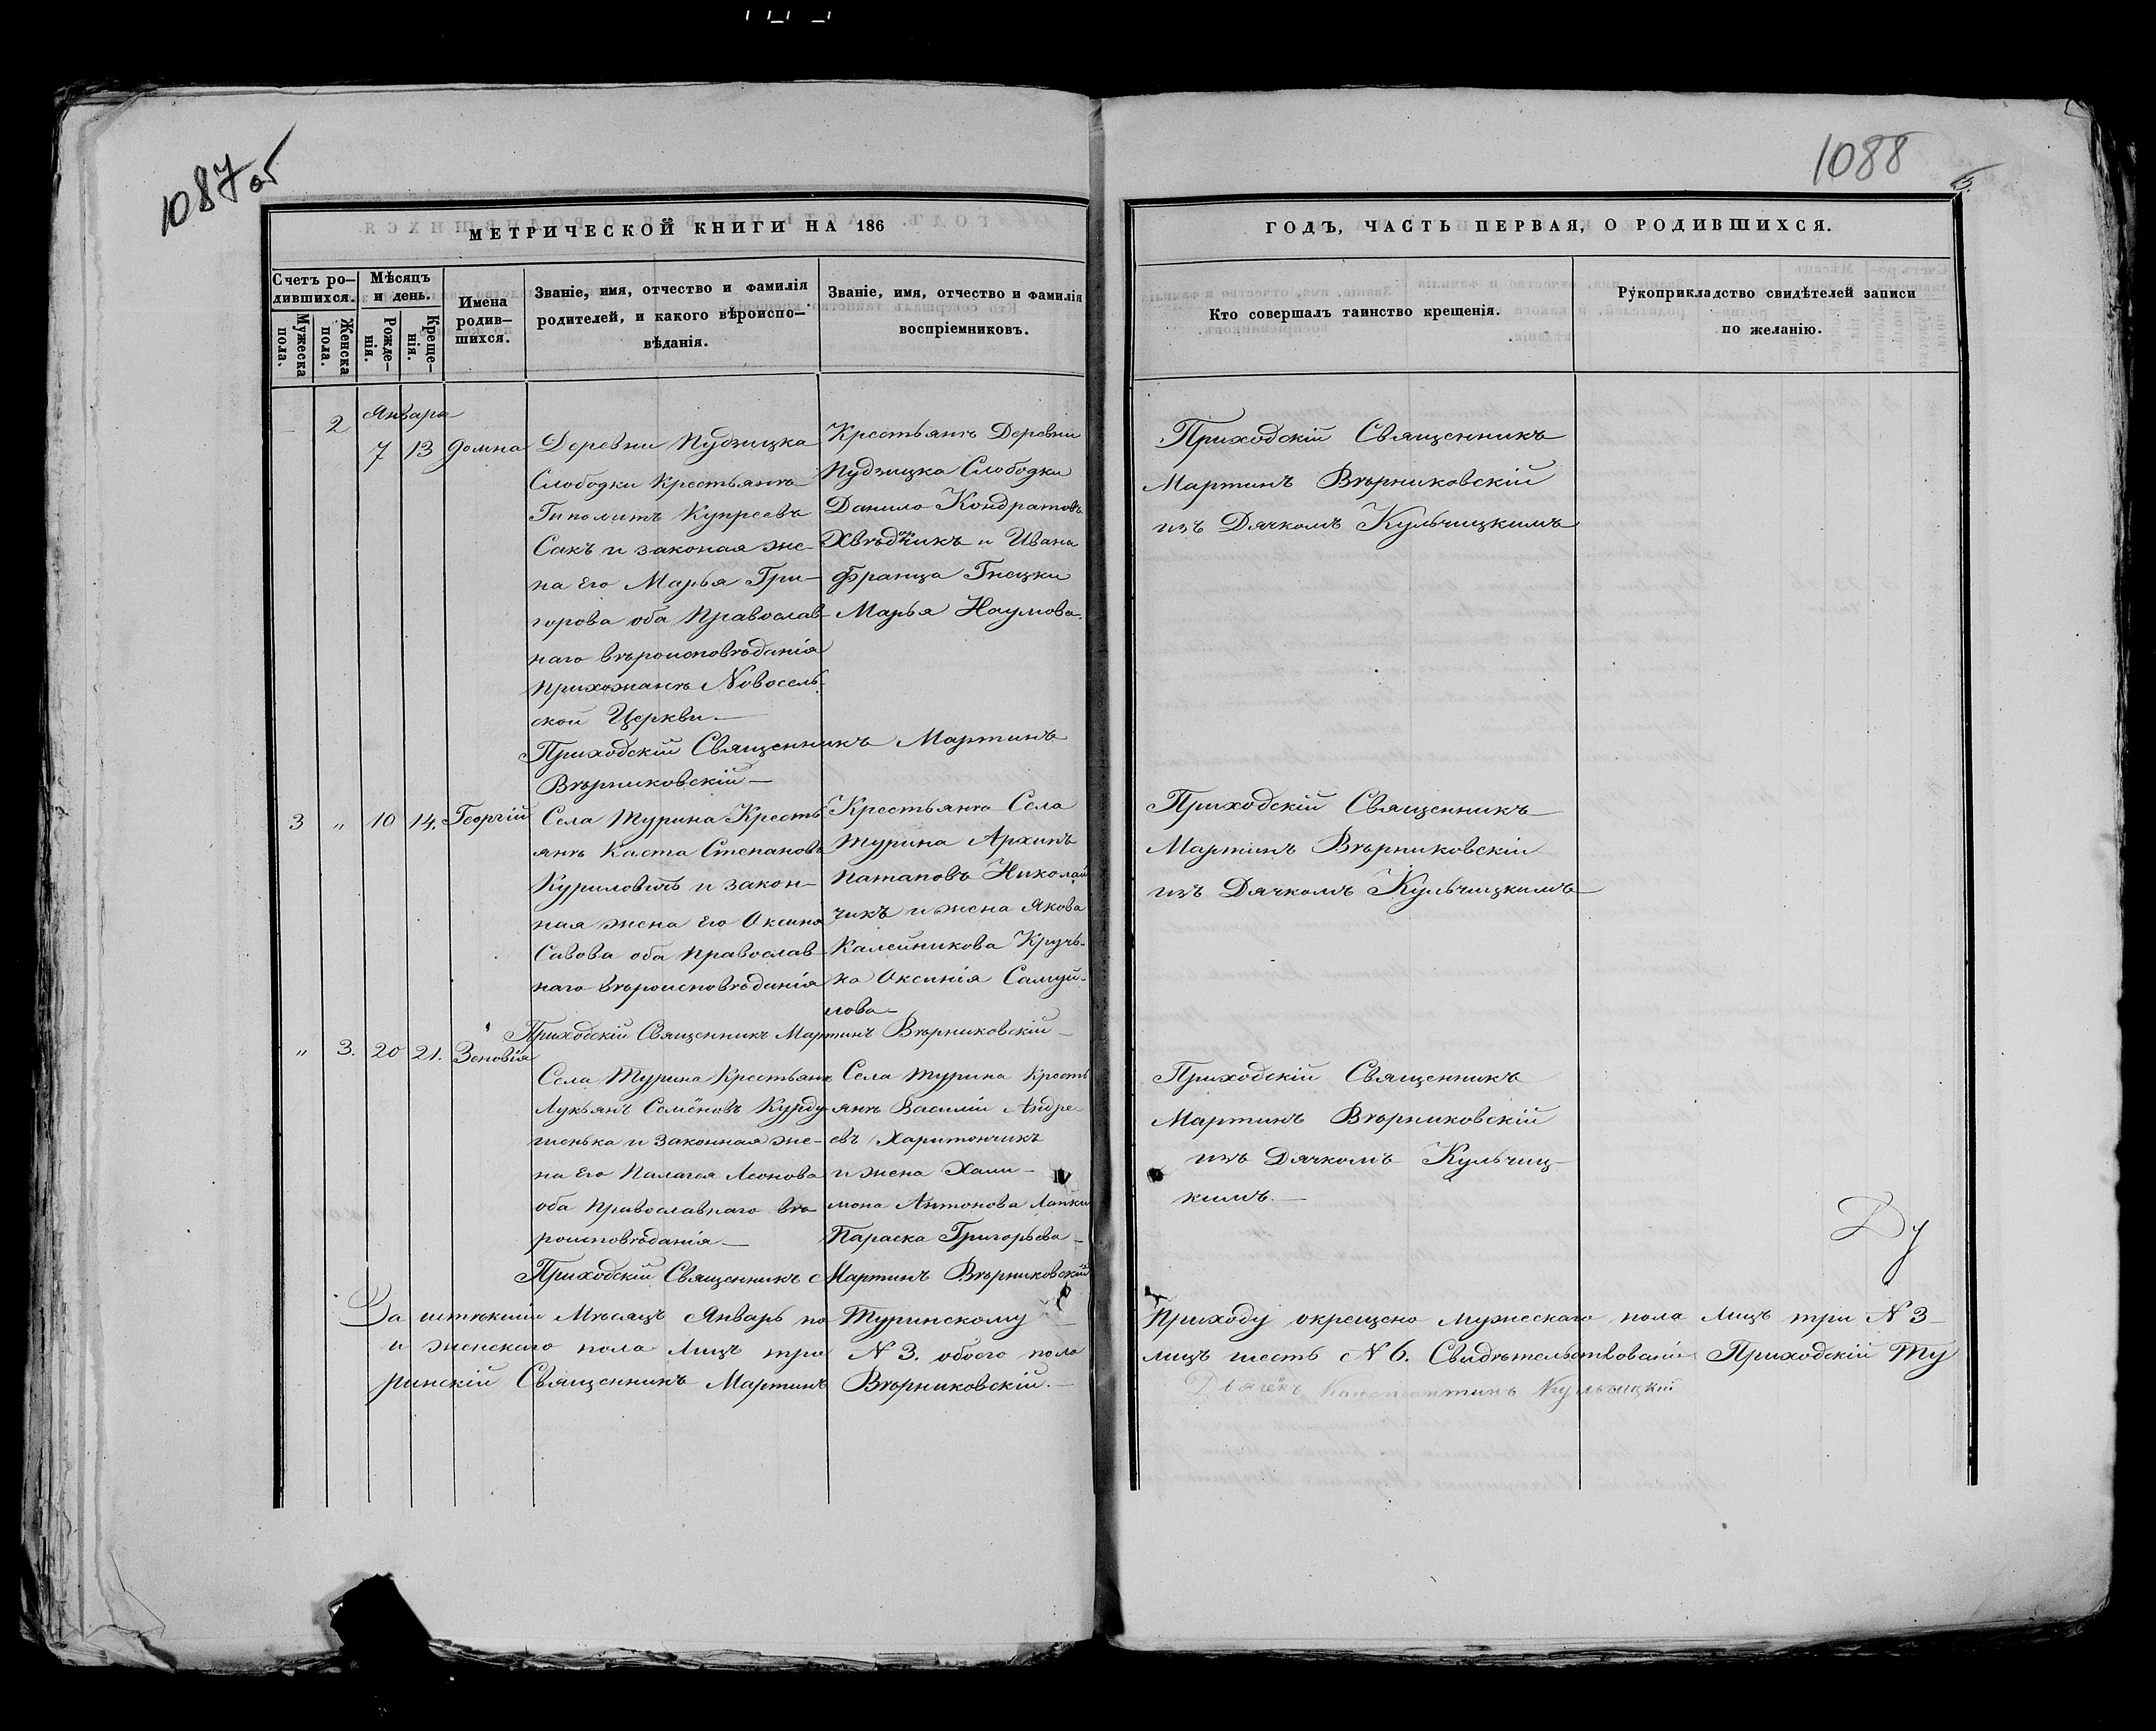 1087 об
1088
МЕТРИЧЕСКОЙ КНИГИ НА 186
ГОДЪ, ЧАСТЬ ПЕРВАЯ, О РОДИВШИХСЯ.
Счетъ ро-
дившихся.
Мужеска
пола.
Женска
пола.
Мѣсяцъ
и день.
Рожде-
нія.
Креще-
нія.
Имена
родив-
шихся.
Званіе, имя, отчество и фамилія
родителей, и какого вѣроиспо-
вѣданія.
Званіе, имя, отчество и фамилія
воспріемниковъ.
Кто совершалъ таинство крещенія.
Рукоприкладство свидѣтелей записи
по желанію.
Января
2 7 13 Домна
Деревни Пудзицка
Слободки Крестьянъ
Гиполитъ Купреевъ
Сакъ и законая же-
на его Марья Гри-
горова оба Православ-
наго вѣроисповѣданія
прихожанъ Новосель-
ской Церкви.—
Крестьянъ Деревни
Пудзицка Слободки
Данило Кондратовъ
и Ивана
Франца Гнецки
Марья Наумова.
Приходскій Священникъ
Мартинъ Вѣрниковскій
изъ Дячкомъ Кульчицкимъ
Приходскій Священникъ Мартинъ
Вѣрниковскій—
3 " 10 14. Георгій
Села Турина Кресть
янъ Каста Степановъ
Куриловичъ и закон-
ная жена его Оксиня
Савова оба Православ-
наго вѣроисповѣдинія
Крестьянъ Села
Турина Архипъ
Патаповъ Николай
чикъ и жена Якова
Калейникова Кручь-
ка Оксинія Самуй-
лова—
Приходскій Священникъ
Мартинъ Вѣрниковскій
изъ Дячкомъ Кульчицкимъ
Приходскій Священникъ Мартинъ Вѣрниковскій—
" 3. 20 21. Зеновія
Села Турина Крестьянъ
Лукьянъ Семёновъ Курду-
шенька и Законная же-
на его Палагея Леонова
оба Православнаго вѣ
роисповѣданія—
Села Турина Кресть
янъ Василій Андре-
евъ Харитончикъ
и жена Хали-
мона Антонова Лапки
Параска Григорьева—
Приходскій Священникъ
Мартинъ Вѣрниковскій
изъ Дячкомъ Кульчиц-
кимъ.—
Приходскій Священникъ Мартинъ Вѣрниковскій
За истѣкшій Мѣсяцъ Январь по Туринскому Приходу окрещено мужескаго пола Лицъ три N 3—
и женскаго пола Лицъ три N 3. обоего пола лицъ шесть N 6. Свидѣтельствовалъ Приходскій Ту
ринскій Священникъ Мартинъ Вѣрниковскій.—
Дьячёкъ Константинъ Кульчицкій